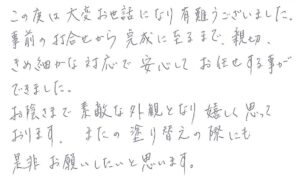 この度は大変お世話になり有難うございました。
事前の打合せから完成に至るまで、親切、
きめ細かな対応で安心してお任せする事が
できました。
お陰さまで素敵な外観となり嬉しく思って
おります。またの塗り替えの際にも
是非お願いしたいと思います。